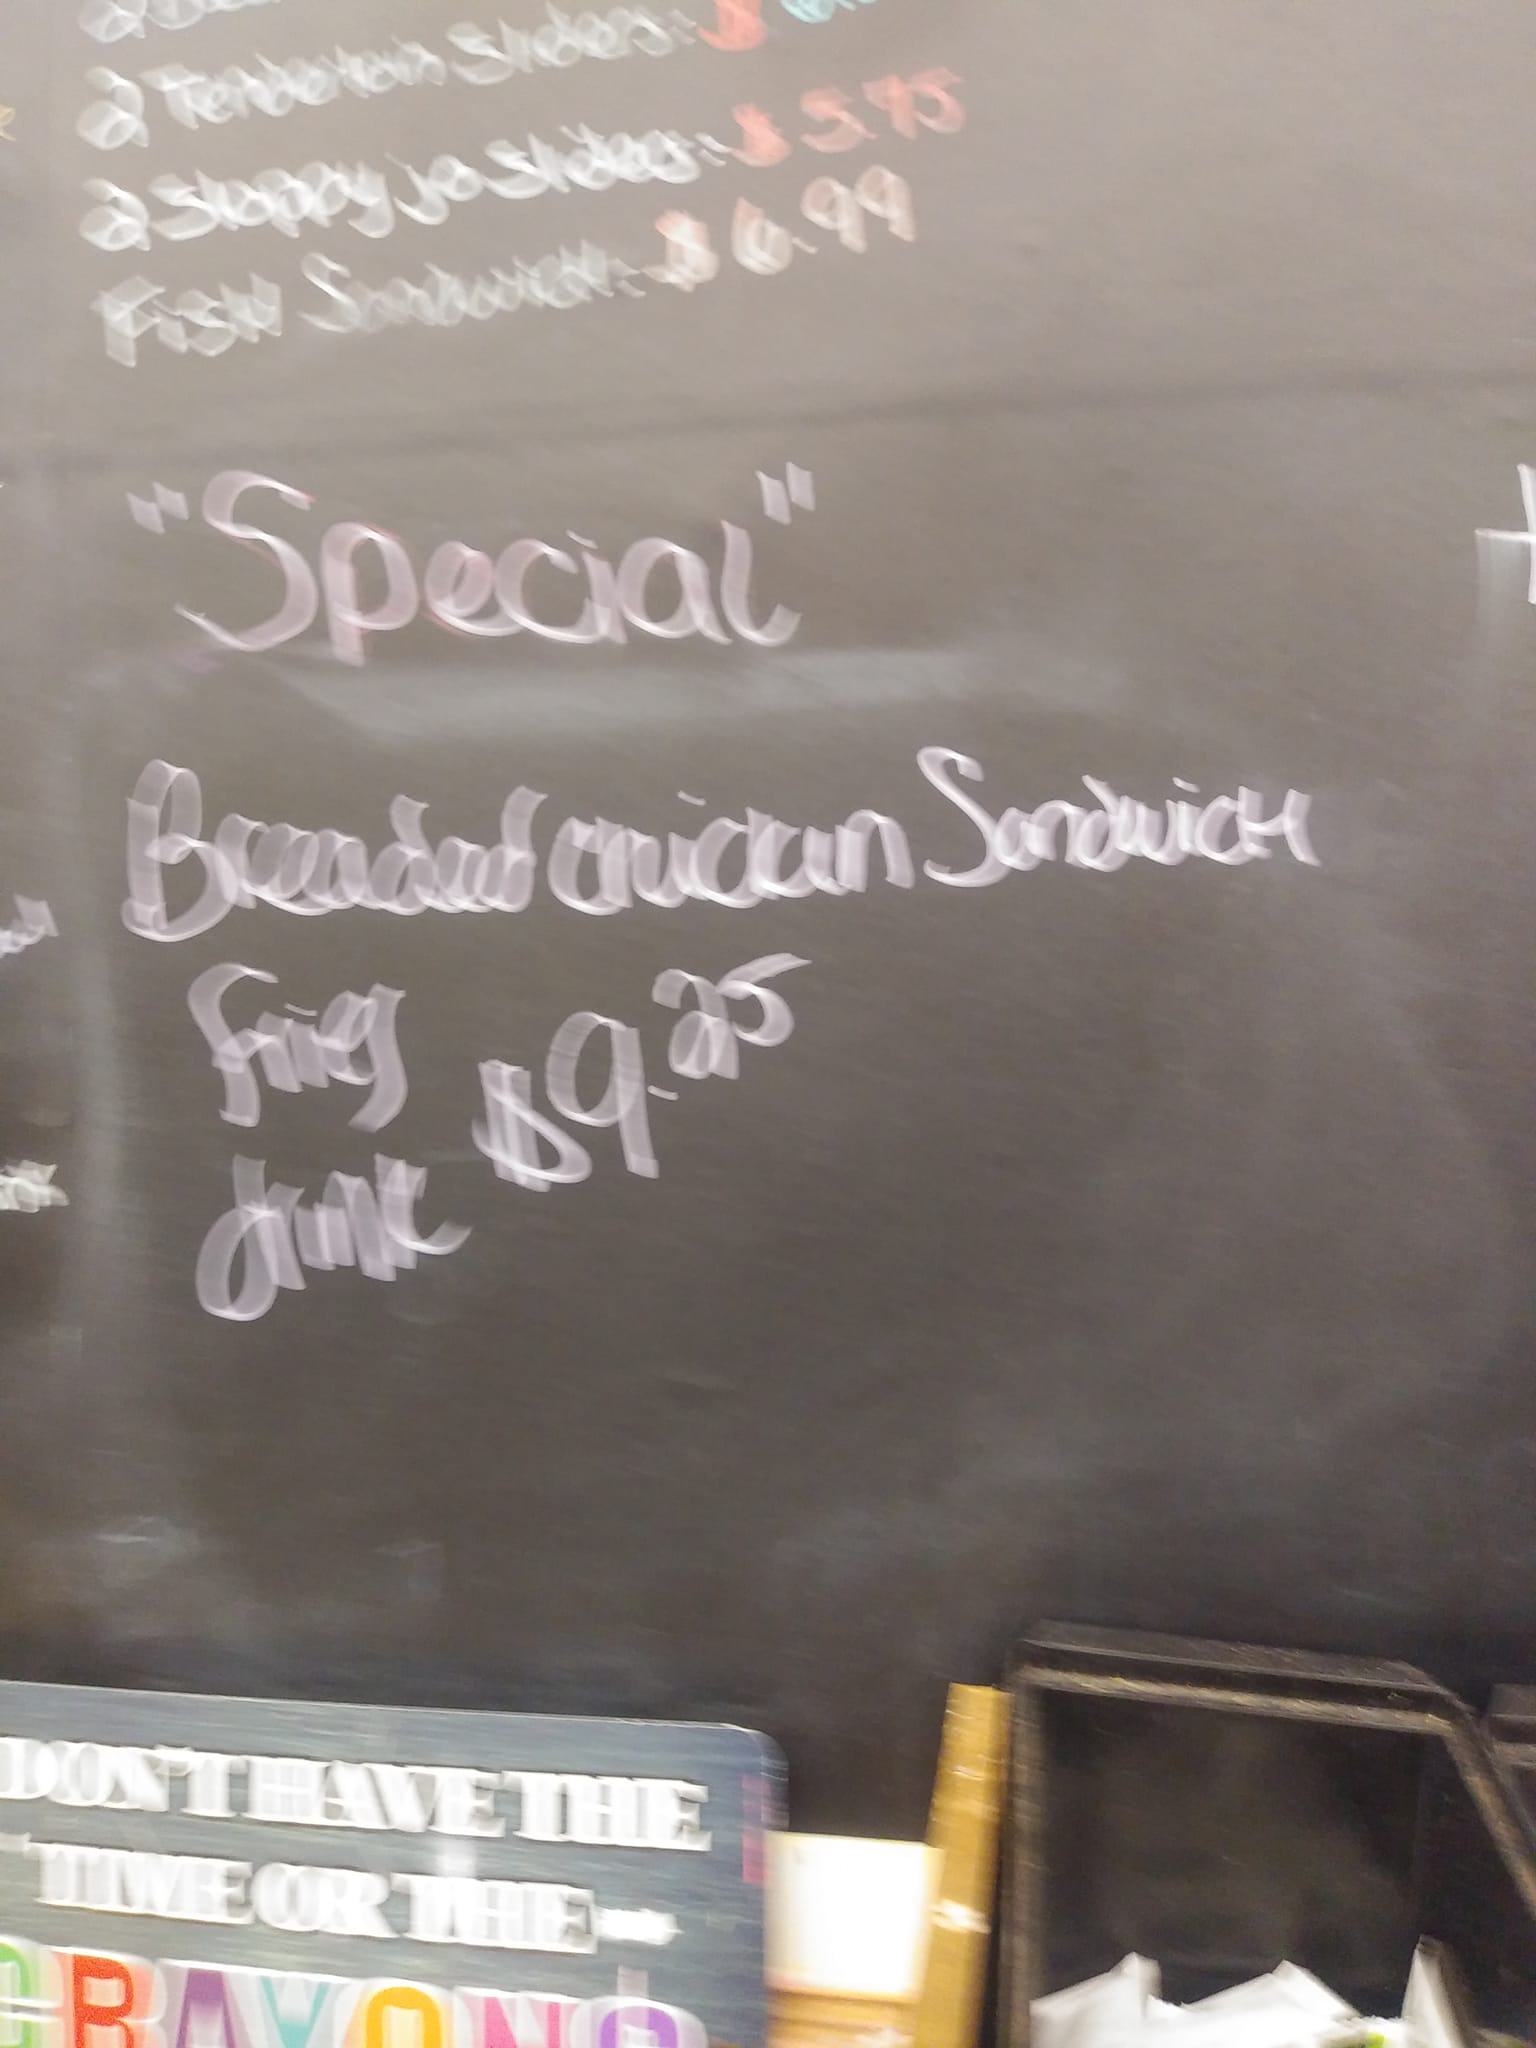 2 Tenderloin Sliders: $
2 Sloppy jo Sliders: $5.95
Fish Sandwich: $6.99
"Special"
Breaded chicken Sandwich
fries
$9.25
drink
DON'T HAVE THE
TIME OR THE
CRAYONS